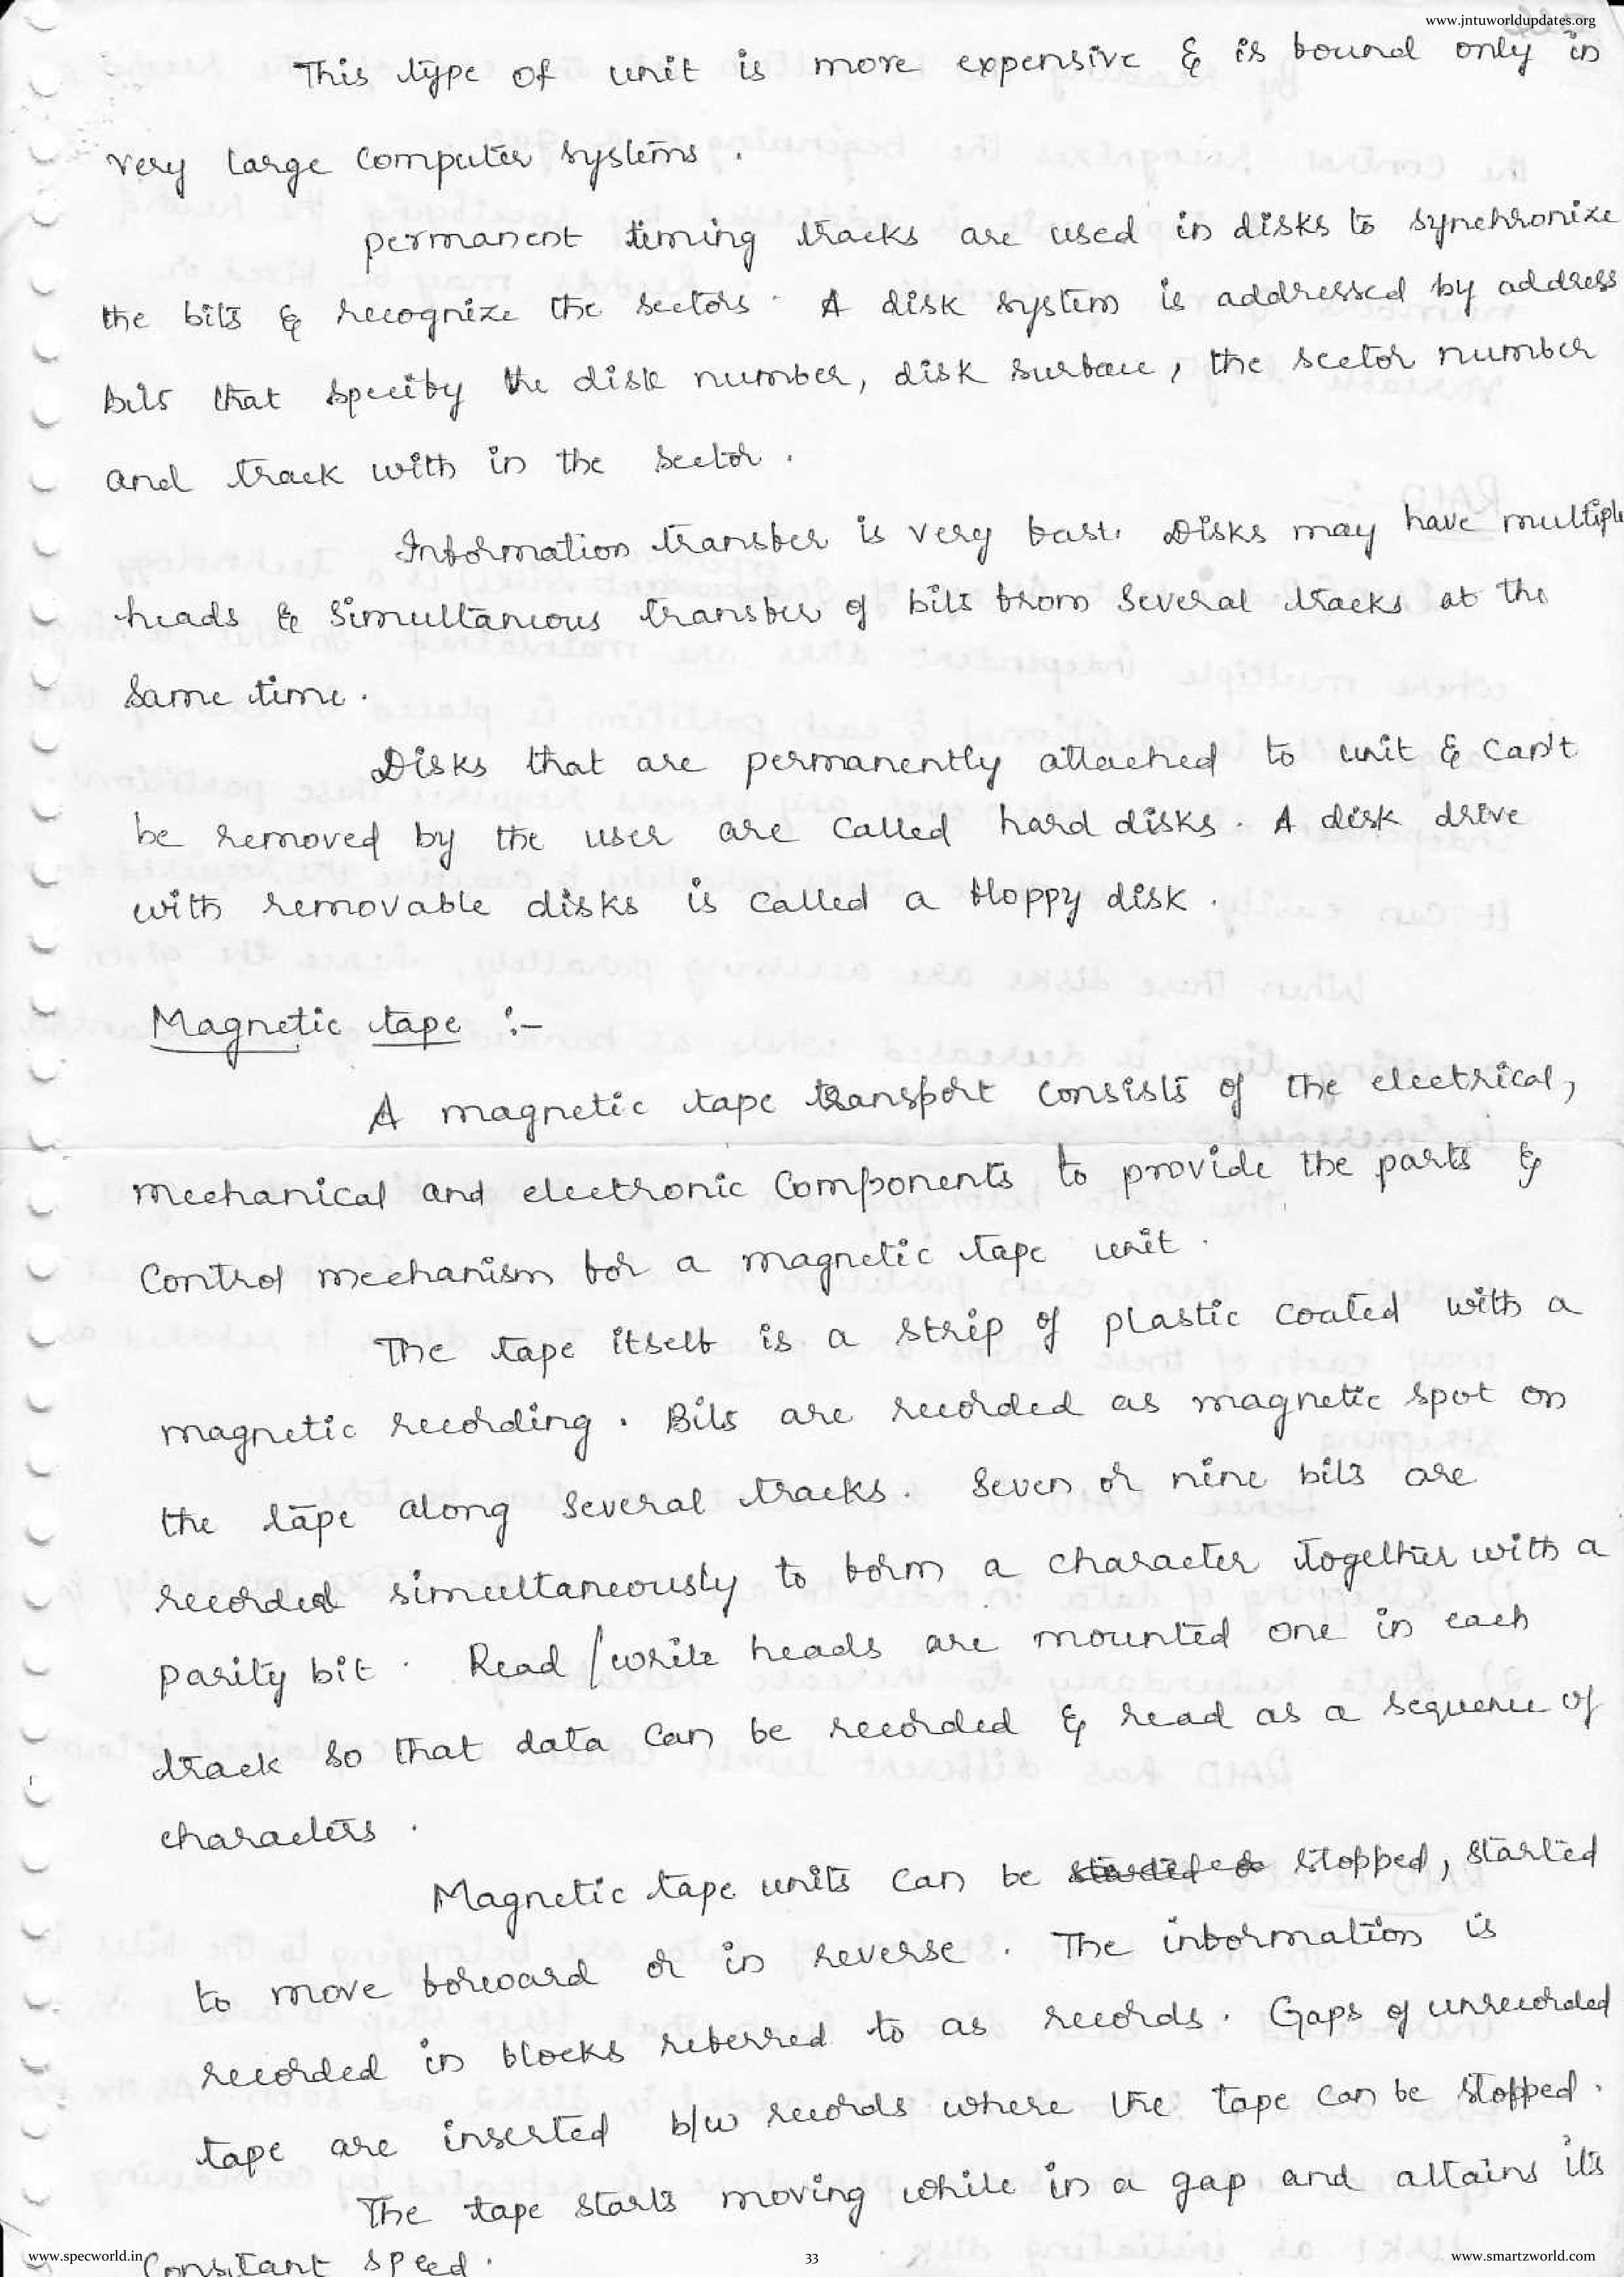 www.jntuworldupdates.org
This type of unit is more expensive & is bound only in
very large computer systems .
permanent timing tracks are used in disks to synchronize
the bits & recognize the sectors . A disk system is addressed by address
bits that specify the disk number, disk surface, the sector number
and track with in the sector .
Information transfer is very fast. Disks may have multiple
heads & simultaneous transfer of bits from several tracks at the
same time .
Disks that are permanently attached to unit & can't
be removed by the user are called hard disks . A disk drive
with removable disks is called a floppy disk .
Magnetic tape :-
A magnetic tape transport consists of the electrical,
mechanical and electronic components to provide the parts &
control mechanism for a magnetic tape unit .
The tape itself is a strip of plastic coated with a
magnetic recording . Bits are recorded as magnetic spot on
the tape along several tracks . Seven or nine bits are
recorded simultaneously to form a character together with a
parity bit . Read /write heads are mounted one in each
track so that data can be recorded & read as a sequence of
characters .
Magnetic tape units can be stopped, started
to move forward or in reverse . The information is
recorded in blocks referred to as records . Gaps of unrecorded
tape are inserted b/w records where the tape can be stopped .
The tape starts moving while in a gap and attains its
constant speed .
www.specworld.in
33
www.smartzworld.com